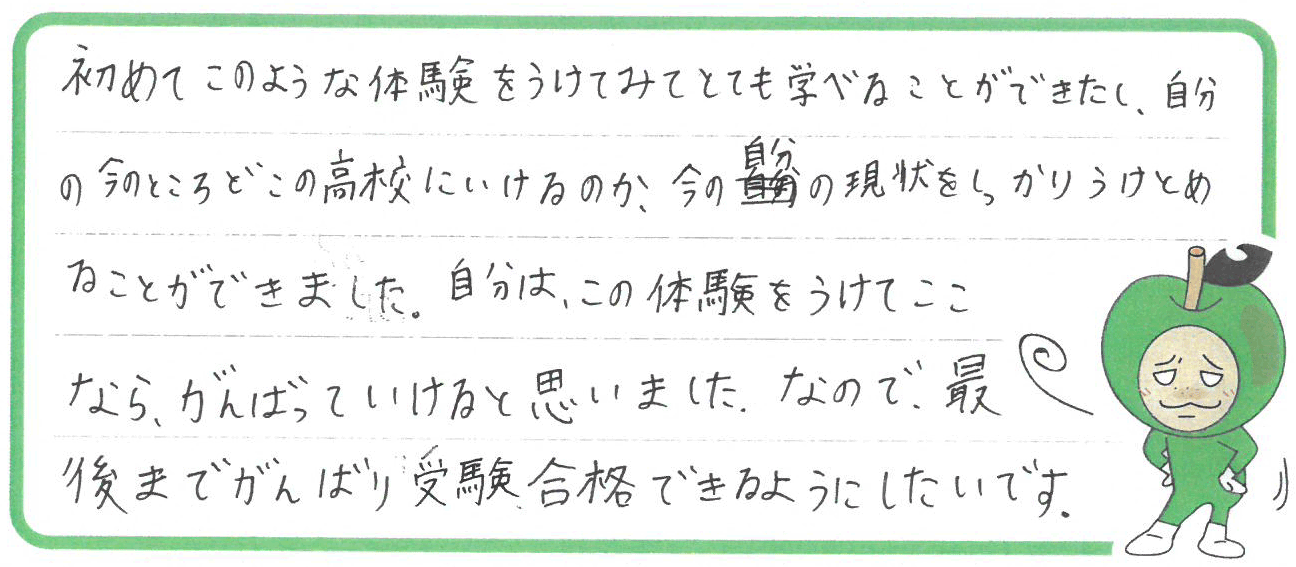 初めてこのような体験をうけてみてとても学べることができたし、自分
の今のところどこの高校にいけるのか、今の自分の現状をしっかりうけとめ
ることができました。自分は、この体験をうけてここ
なら、がんばっていけると思いました。なので、最
後までがんばり受験合格できるようにしたいです。